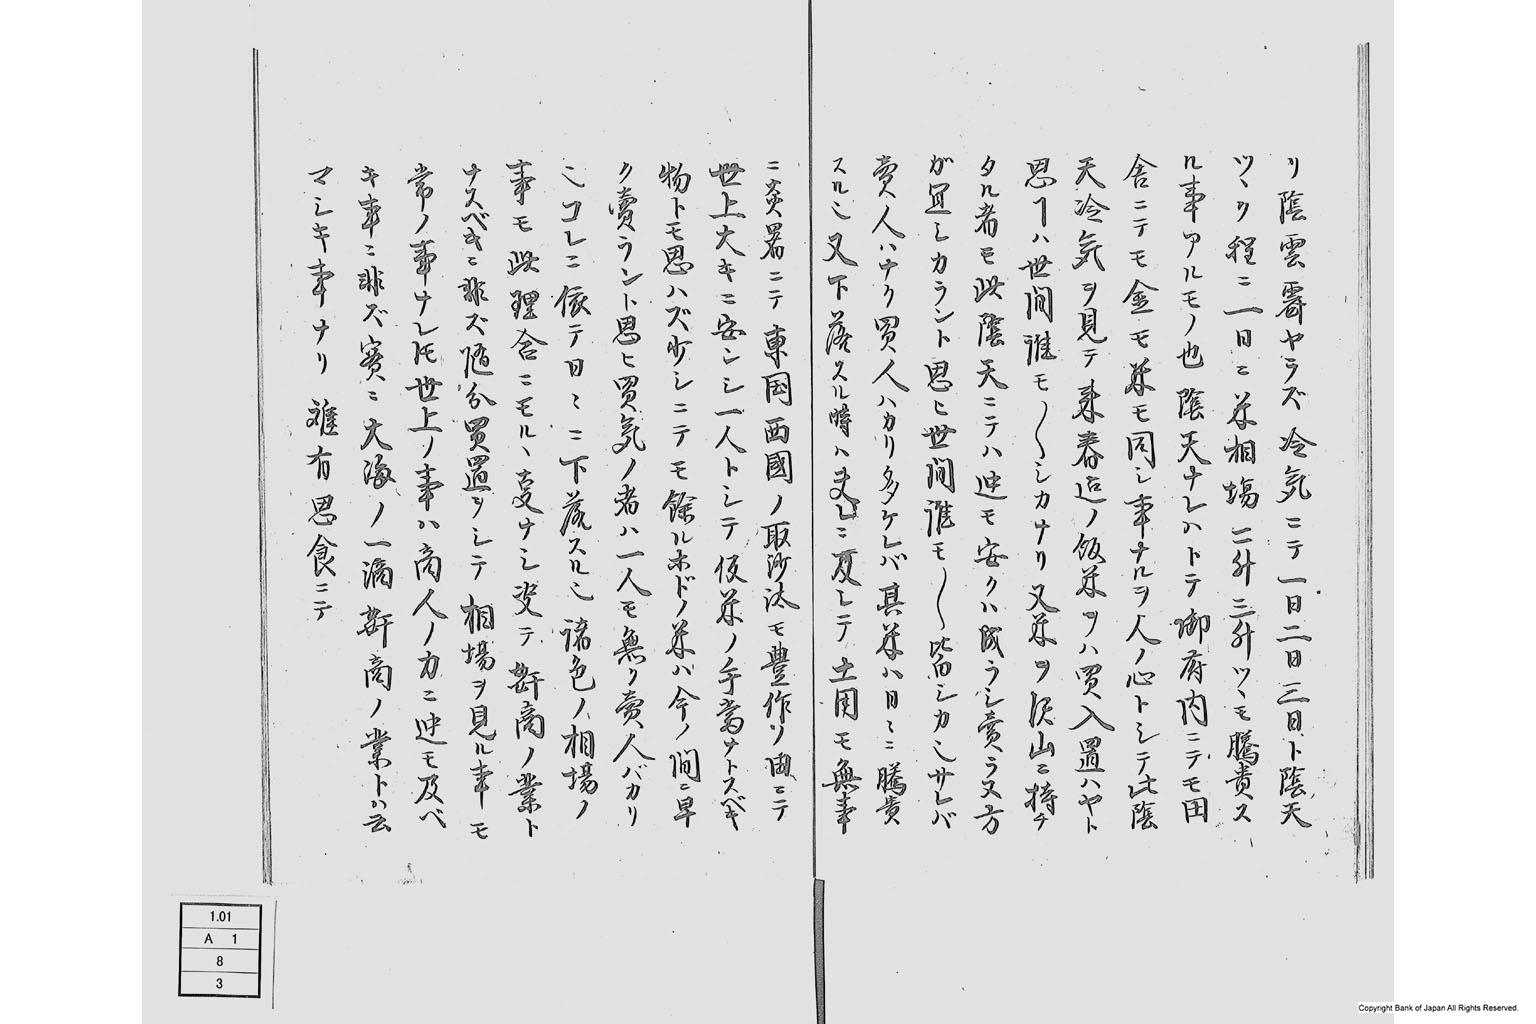 リ陰雲霽ヤラズ冷気ニテ一日二日三日ト陰天
ツヾク程ニ一日〻〻米相場二升三升ツヽモ騰貴ス
ル事アルモノ也陰天ナレハトテ御府内ニテモ田
舎ニテモ金モ米モ同シ事ナルヲ人ノ心トシテ此陰
天冷気ヲ見テ来春迄ノ飯米ヲハ買入置ハヤト
思フハ世間誰モ〳〵シカナリ又米ヲ沢山ニ持チ
タル者モ此陰天ニテハ迚モ安クハ成ラシ賣ラヌ方
ガ冝シカラント思ヒ世間誰モ〳〵皆シカシサレバ
賣人ハナク買人ハカリ多ケレバ其米ハ日〻ニ騰貴
スル也又下落スル時ハ是ニ反シテ土用モ無事
ニ炎暑ニテ東国西國ノ取沙汰モ豊作ノ由ニテ
世上大キニ安シシ一人トシテ仮米ノ手當ナトスベキ
物トモ思ハズ少シニテモ餘ルホドノ米ハ今ノ間ニ早
ク賣ラント思ヒ買気ノ者ハ一人モ無ク賣人バカリ
也コレニ依テ日〻ニ下落スル也諸色ノ相場ノ
事モ此理合ニモルヽ変ナシ姿テ斯商ノ業ト
ナスベキニ非ズ随分買置ヲシテ相場ヲ見ル事モ
常ノ事ナレ𪜈世上ノ事ハ商人ノ力ニ迚モ及ベ
キ事ニ非ズ實ニ大海ノ一滴斯商ノ業トハ云
マシキ事ナリ難有思食ニテ
1.01
A 1
8
3
Copyright Bank of Japan All Rights Reserved.